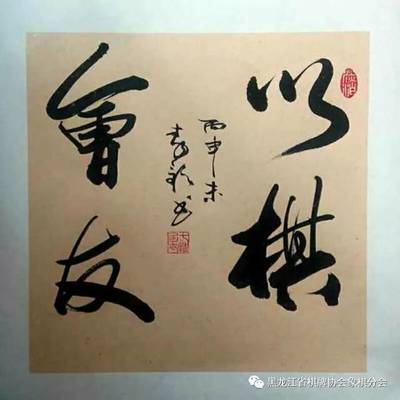 以棋
會友
丙申末
黑龙江省棋牌协会象棋分会